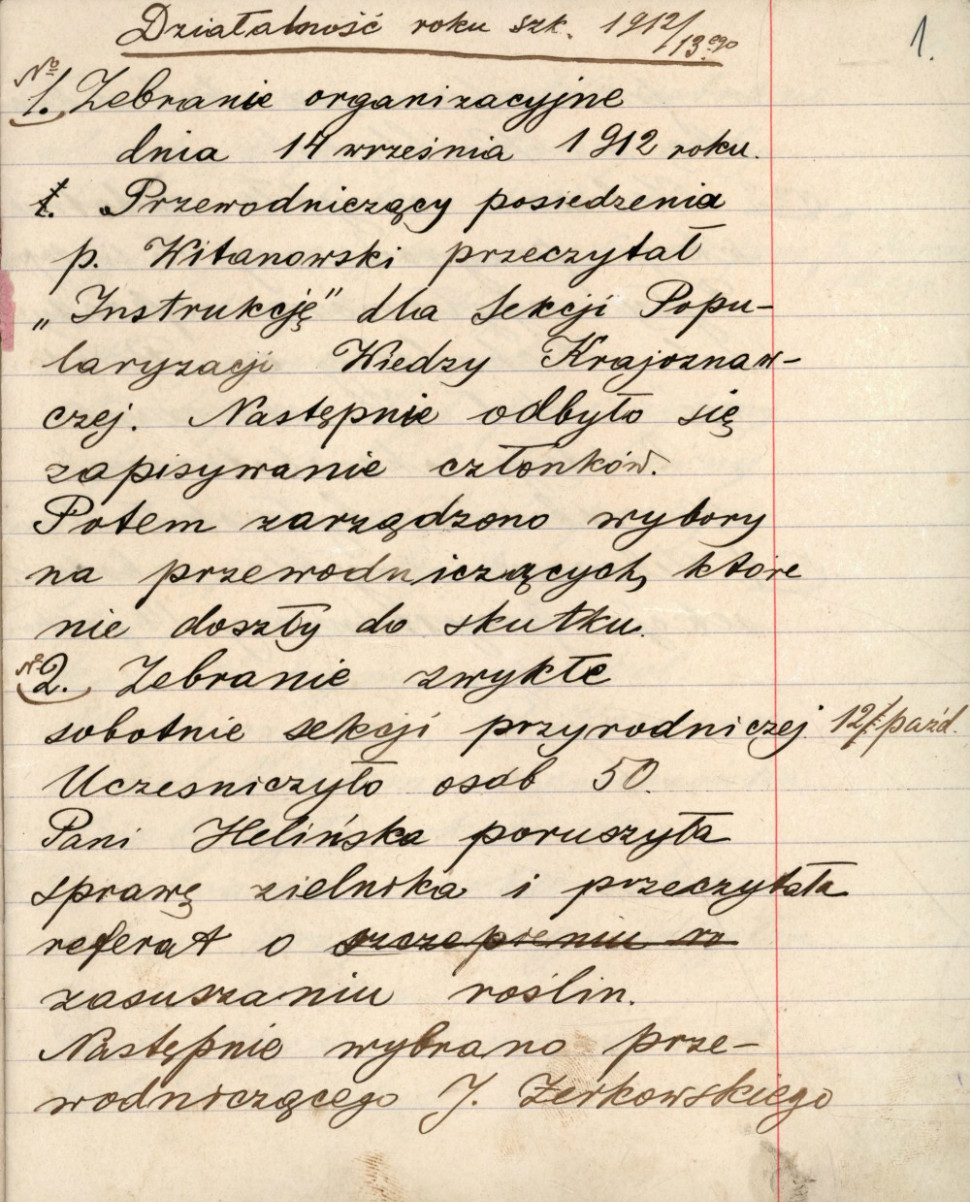 Działalność roku szk. 1912/13.ego
1.
№ 1. Zebranie organizacyjne
dnia 14 września 1912 roku.
1. Przewodniczący posiedzenia
p. Witanowski przeczytał
„Instrukcję” dla Sekcji Popu-
laryzacji Wiedzy Krajoznaw-
czej. Następnie odbyło się
zapisywanie członków.
Potem zarządzono wybory
na przewodniczących, które
nie doszły do skutku.
№ 2. Zebranie zwykłe
sobotnie sekcji przyrodniczej 12/X paźd.
Uczesniczyło osób 50.
Pani Helińska poruszyła
sprawę zielnika i przeczytała
referat o szczepieniu ro
zasuszaniu roślin.
Następnie wybrano prze-
wodniczącego J. Żerkowskiego